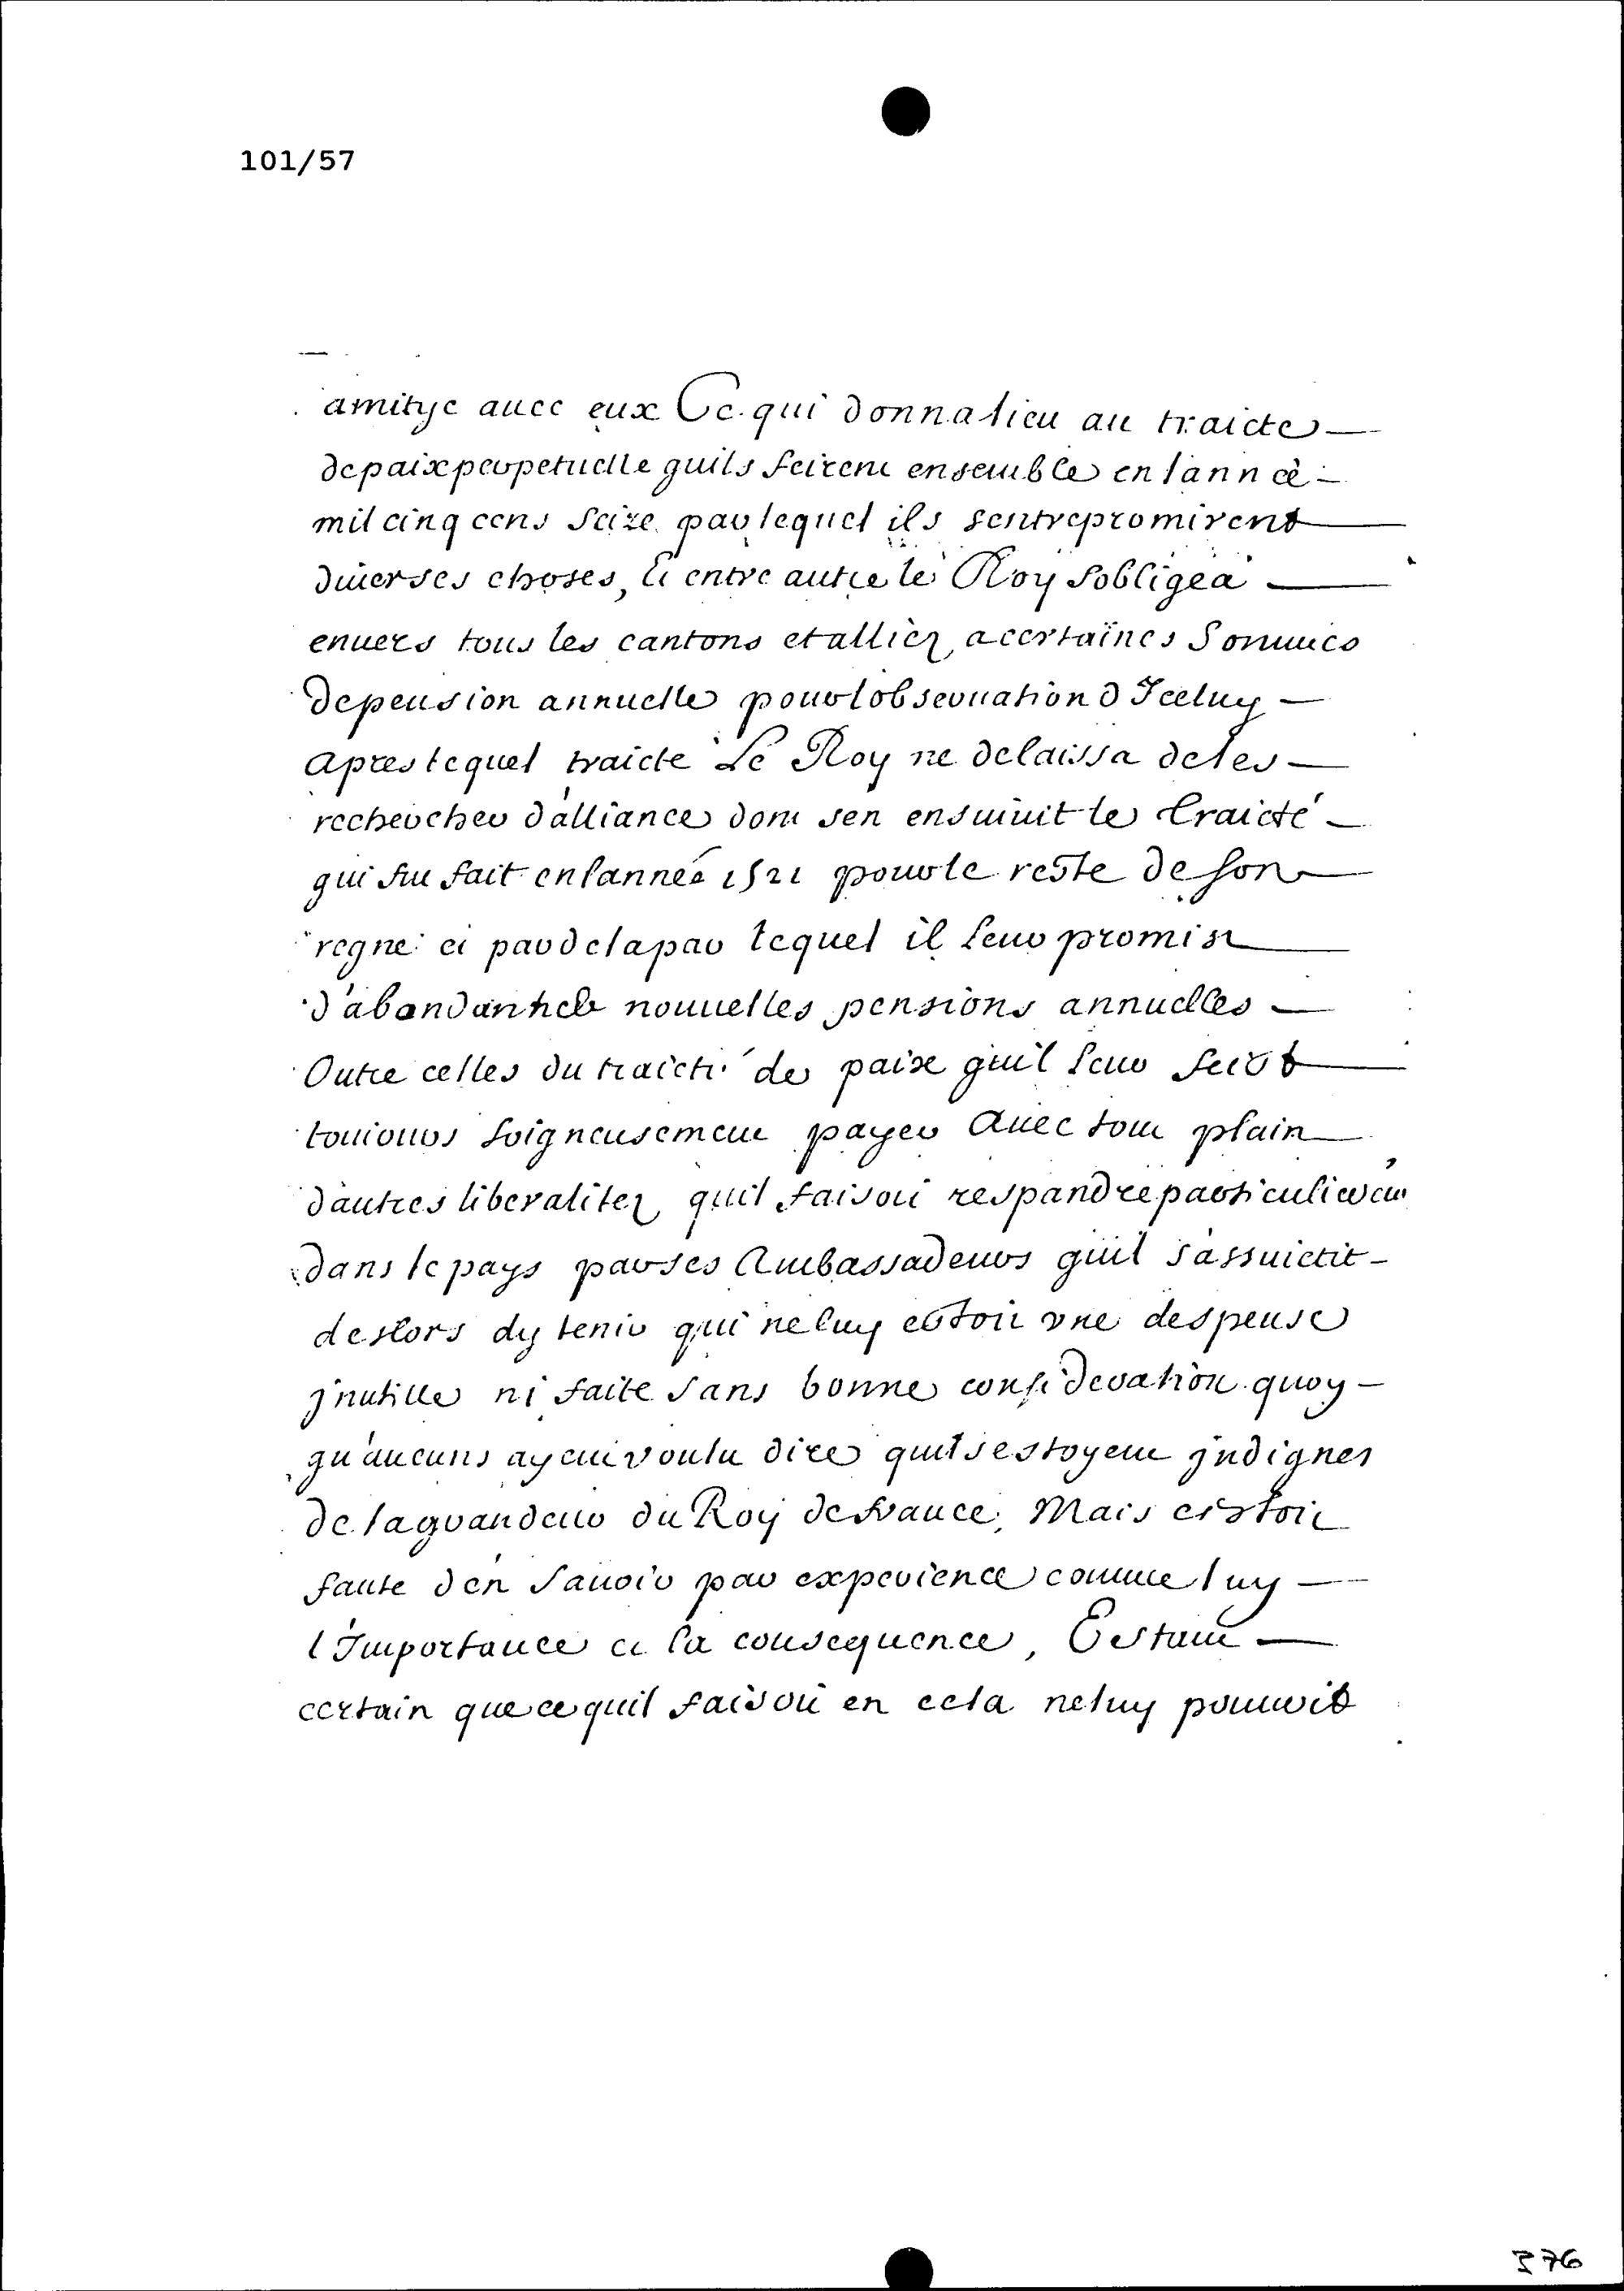 101/57
amitye auec eux Ce qui donna lieu au traicte
de paix perpetuelle quils feirent ensemble en lannèe
mil cinq cens seize par lequel ils sentrepromirent
diuerses choses, Et entre autre le Roy sobligea
enuers tous les cantons et alliez, a certaines sommes
de pension annuelle pour lobseruation d Iceluy
apres lequel traicte Le Roy ne delaissa de les
rechercher d'alliance dont sen ensuiuit le traicté
qui fut fait en lannee 1521 pour le reste de son
regne et par dela par lequel il leur promist
d'abondant de nouuelles pensions annuelles
Outre celles du traicté de paix quil leur feist
tousiours soigneusement payer auec tout plain
d'autres liberalitez quil faisoit respandre particulierement
dans le pays par ses Ambassadeurs quil s'assuiettit
deslors dy tenir qui ne luy estoit vne despense
jnutille ni faite sans bonne consideration quoy
qu'aucuns ayent voulu dire quilsestoyent jndignes
de la grandeur du Roy de france, Mais cestoit
faute d'en sauoir par experience comme luy
l Importance et la consequence, Estant
certain que ce quil faisoit en cela ne luy pouuoit
376